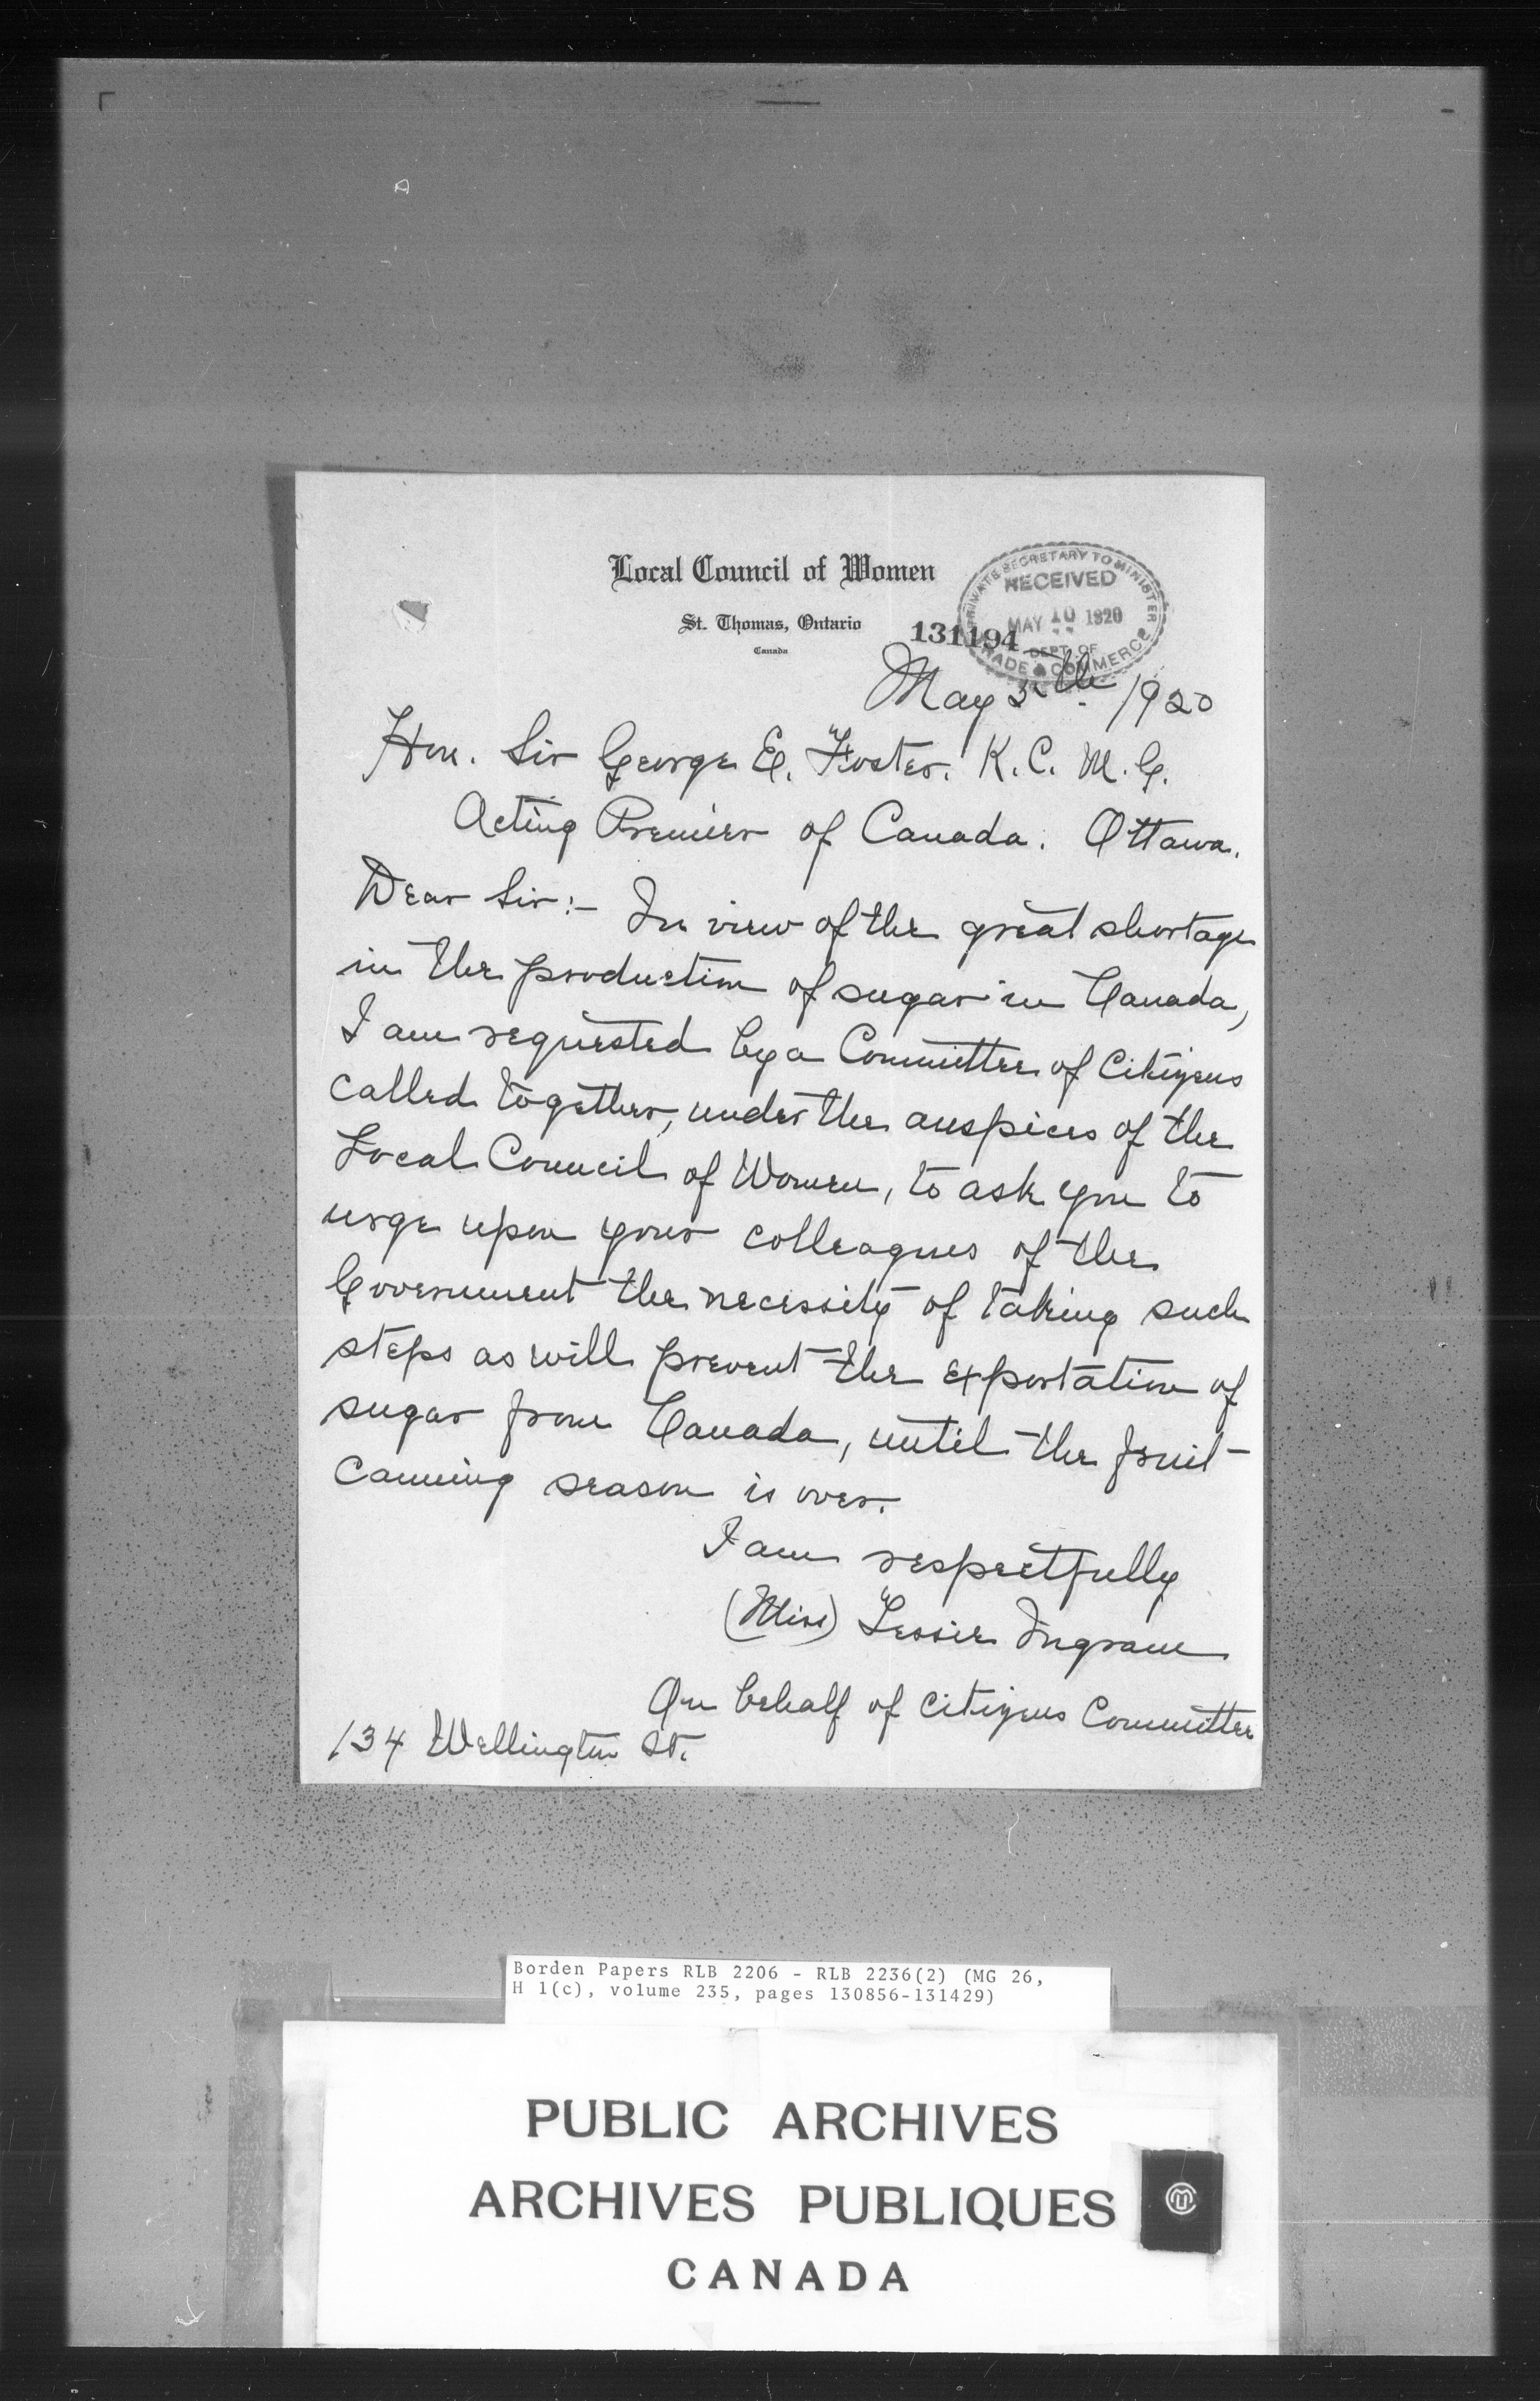 Local Council of Women
St. Thomas, Ontario
Canada
PRIVATE SECRETARY TO MINISTER
RECEIVED
MAY 10 1920
DEPT. OF
TRADE & COMMERCE
131194
May 5th. 1920
Hon. Sir George E. Foster. K. C. M. G.
Acting Premier of Canada. Ottawa.
Dear Sir:- In view of the great shortage
in the production of sugar in Canada,
I am requested by a Committee of Citizens
called together, under the auspices of the
Local Council of Women, to ask you to
urge upon your colleagues of the
Government the necessity of taking such
steps as will prevent the exportation of
sugar from Canada, until the fruit
canning season is over.
I am respectfully
(Miss) Ingram
On behalf of Citizens Committee
134 Wellington St.
Borden Papers RLB 2206 - RLB 2236(2) (MG 26,
H 1(c), volume 235, pages 130856-131429)
PUBLIC ARCHIVES
ARCHIVES PUBLIQUES
CANADA